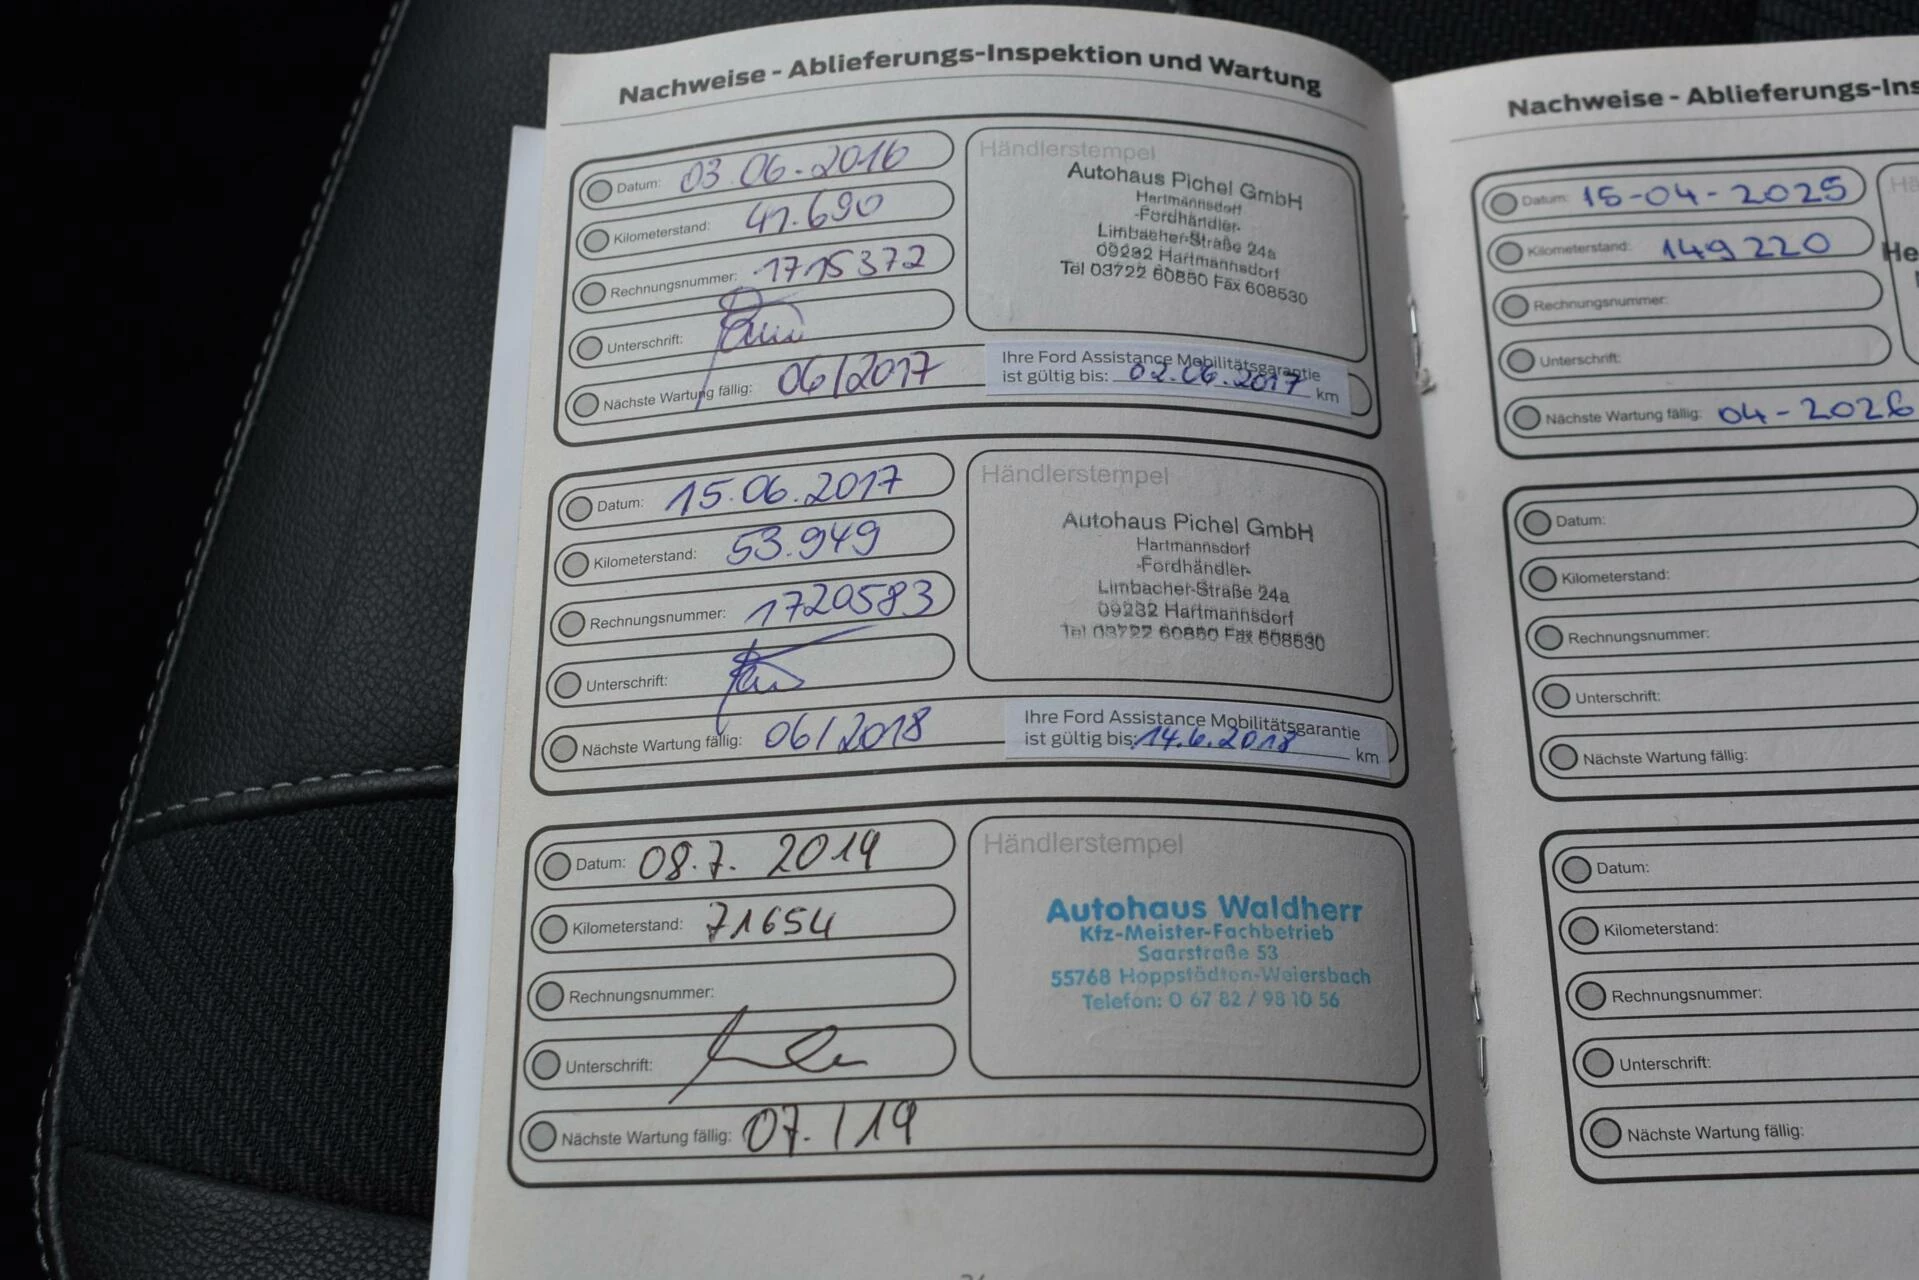 Nachweise - Ablieferungs-Inspektion und Wartung
Datum: 03.06.2016
Kilometerstand: 41.690
Rechnungsnummer: 1715372
Unterschrift:
Nächste Wartung fällig: 06/2017
Händlerstempel
Autohaus Pichel GmbH
Hartmannsdorf
-Fordhändler-
Limbacher-Straße 24a
09232 Hartmannsdorf
Tel 03722 60850 Fax 608530
Ihre Ford Assistance Mobilitätsgarantie
ist gültig bis: 02.06.2017 km
Datum: 15.06.2017
Kilometerstand: 53.949
Rechnungsnummer: 1720583
Unterschrift:
Nächste Wartung fällig: 06/2018
Händlerstempel
Autohaus Pichel GmbH
Hartmannsdorf
-Fordhändler-
Limbacher-Straße 24a
09232 Hartmannsdorf
Tel 03722 60850 Fax 608530
Ihre Ford Assistance Mobilitätsgarantie
ist gültig bis: 14.6.2018 km
Datum: 08.7. 2019
Kilometerstand: 71654
Rechnungsnummer:
Unterschrift:
Nächste Wartung fällig: 07./19
Händlerstempel
Autohaus Waldherr
Kfz-Meister-Fachbetrieb
Saarstraße 53
55768 Hoppstädten-Weiersbach
Telefon: 0 67 82 / 98 10 56
Nachweise - Ablieferungs-Ins
Datum: 15-04-2025
Kilometerstand: 149220
Rechnungsnummer:
Unterschrift:
Nächste Wartung fällig: 04-2026
Hä
He
Datum:
Kilometerstand:
Rechnungsnummer:
Unterschrift:
Nächste Wartung fällig:
Datum:
Kilometerstand:
Rechnungsnummer:
Unterschrift:
Nächste Wartung fällig: